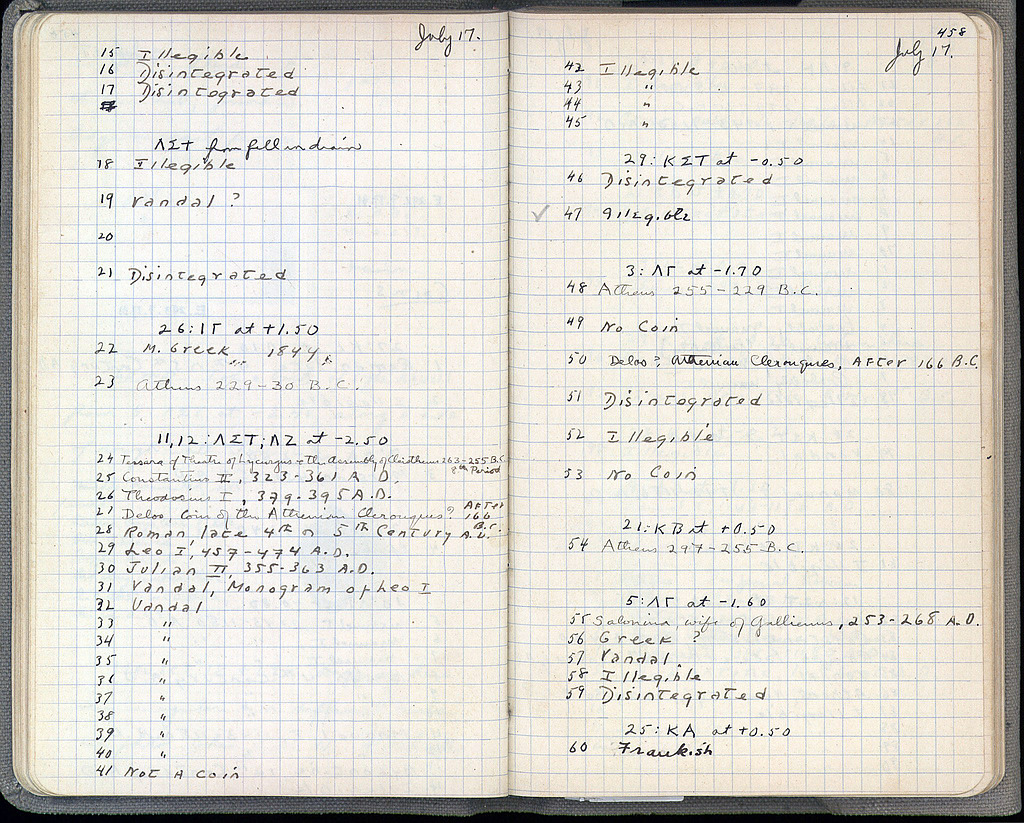 July 17.
15 Illegible
16 Disintegrated
17 Disintegrated
ΛΣΤ from fill in drain
18 Illegible
19 Vandal ?
20
21 Disintegrated
26:ΙΓ at +1.50
22 M. Greek 1844
23 Athens 229-30 B.C.
11,12:ΛΣΤ;ΛΖ at -2.50
24 Tessara of Theatre of Lycurgus + the Assembly of Cleisthenes 263-255 B.C.
8th Period
25 Constantius II, 323-361 A.D.
26 Theodosius I, 379-395 A.D.
27 Delos, Coin of the Athenian Clerouques? After 166 B.C.
28 Roman, late 4th or 5th Century A.D.
29 Leo I, 457-474 A.D.
30 Julian II, 355-363 A.D.
31 Vandal, Monogram of Leo I
32 Vandal
33 "
34 "
35 "
36 "
37 "
38 "
39 "
40 "
41 Not A Coin
458
July 17.
42 Illegible
43 "
44 "
45 "
29:ΚΣΤ at -0.50
46 Disintegrated
✓ 47 Illegible
3:ΛΓ at -1.70
48 Athens 255-229 B.C.
49 No Coin
50 Delos?, Athenian Clerouques, After 166 B.C.
51 Disintegrated
52 Illegible
53 No Coin
21:ΚΒ at +0.50
54 Athens 297-255 B.C.
5:ΛΓ at -1.60
55 Salonina wife of Gallienus, 253-268 A.D.
56 Greek ?
57 Vandal
58 Illegible
59 Disintegrated
25:ΚΑ at +0.50
60 Frankish